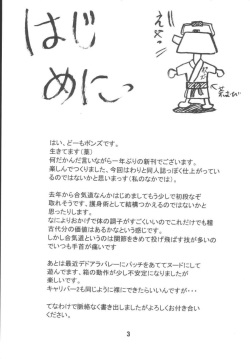 はじ
めにぃ
え父の
茶おび
はい、どーもポンズです。
生きてます(蓋)
何だかんだ言いながら一年ぶりの新刊でございます。
楽しんでつくりました、今回はわりと同人誌っぽく仕上がっているのではないかと思いまっす(私のなかでは)。
去年から合気道なんかはじめましてもう少しで初段なぞ
取れそうです。護身術として結構つかえるのではないかと
思ったりします。
なによりおかげで体の調子がすごくいいのでこれだけでも稽
古代分の価値はあるかなという感じです。
しかし合気道というのは関節をきめて投げ飛ばす技が多いの
でいつも手首が痛いです
あとは最近デドアラバレーにパッチをあててヌードにして
遊んでます。箱の動作が少し不安定になりましたが
楽しいです。
キャリバー2も同じように裸にできたらいいんですが・・・
てなわけで脈絡なく書き出しましたがよろしくお付き合い
ください。
3